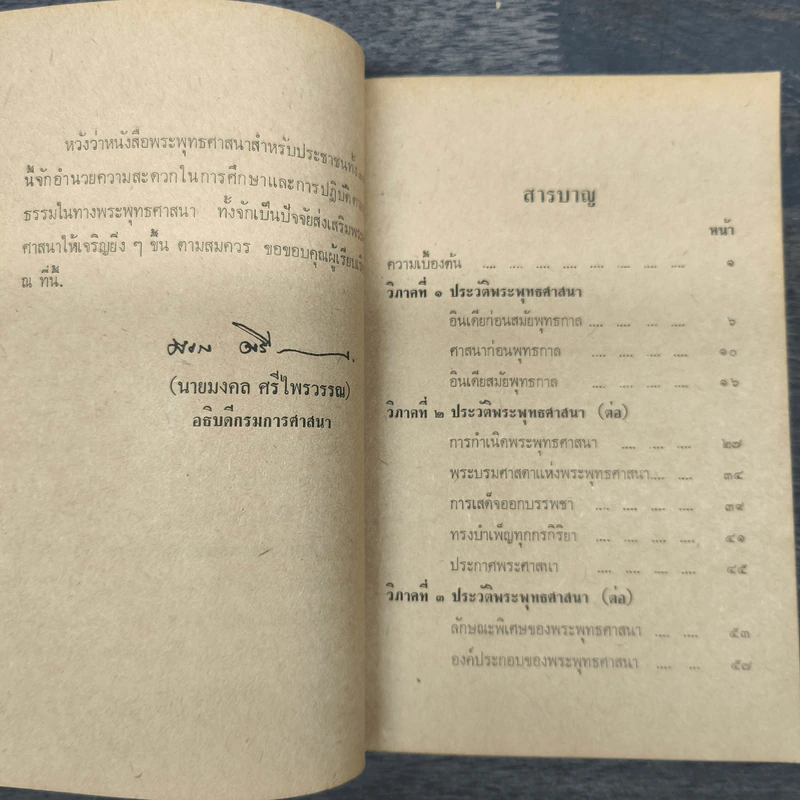 หวังว่าหนังสือพระพุทธศาสนาสำหรับประชาชนทั้ง
นี้จักอำนวยความสะดวกในการศึกษาและการปฏิบัติ
ธรรมในทางพระพุทธศาสนา ทั้งจักเป็นปัจจัยส่งเสริมพระ
ศาสนาให้เจริญยิ่ง ๆ ขึ้น ตามสมควร ขอขอบคุณผู้เรียบ
ณ ที่นี้.
(นายมงคล ศรีไพรวรรณ)
อธิบดีกรมการศาสนา
สารบาญ
หน้า
ความเบื้องต้น .... .... .... .... .... .... .... .... ๑
วิภาคที่ ๑ ประวัติพระพุทธศาสนา
อินเดียก่อนสมัยพุทธกาล .... .... .... .... ๖
ศาสนาก่อนพุทธกาล .... .... .... .... ๑๐
อินเดียสมัยพุทธกาล .... .... .... .... ๑๖
วิภาคที่ ๒ ประวัติพระพุทธศาสนา (ต่อ)
การกำเนิดพระพุทธศาสนา .... .... .... ๒๗
พระบรมศาสดาแห่งพระพุทธศาสนา.... .... ๓๔
การเสด็จออกบรรพชา .... .... .... .... ๓๙
ทรงบำเพ็ญทุกกรกิริยา .... .... .... .... ๔๑
ประกาศพระศาสนา .... .... .... .... ๔๕
วิภาคที่ ๓ ประวัติพระพุทธศาสนา (ต่อ)
ลักษณะพิเศษของพระพุทธศาสนา .... .... ๕๓
องค์ประกอบของพระพุทธศาสนา .... .... ๕๗